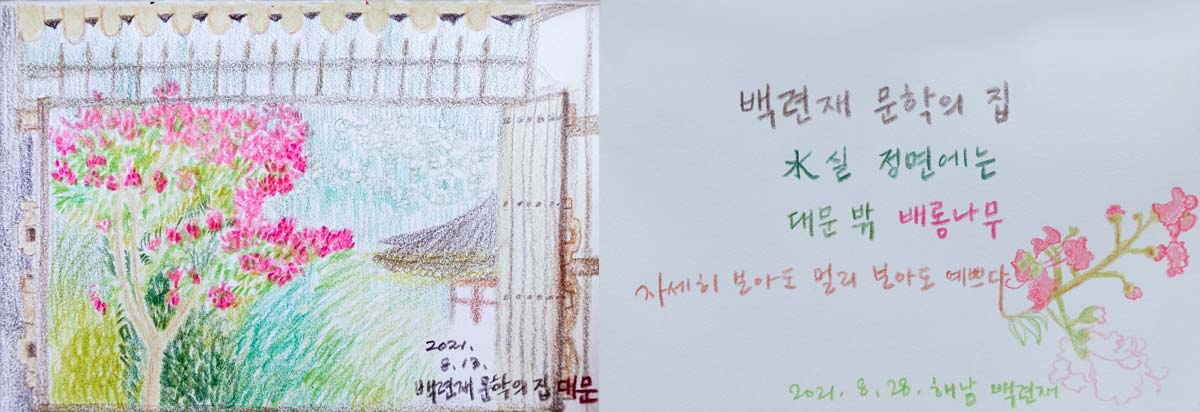 2021.
8.13.
백련재 문학의 집 대문
백련재 문학의 집
水실 정면에는
대문 밖 배롱나무
자세히 보아도 멀리 보아도 예쁘다
2021. 8. 28. 해남 백련재